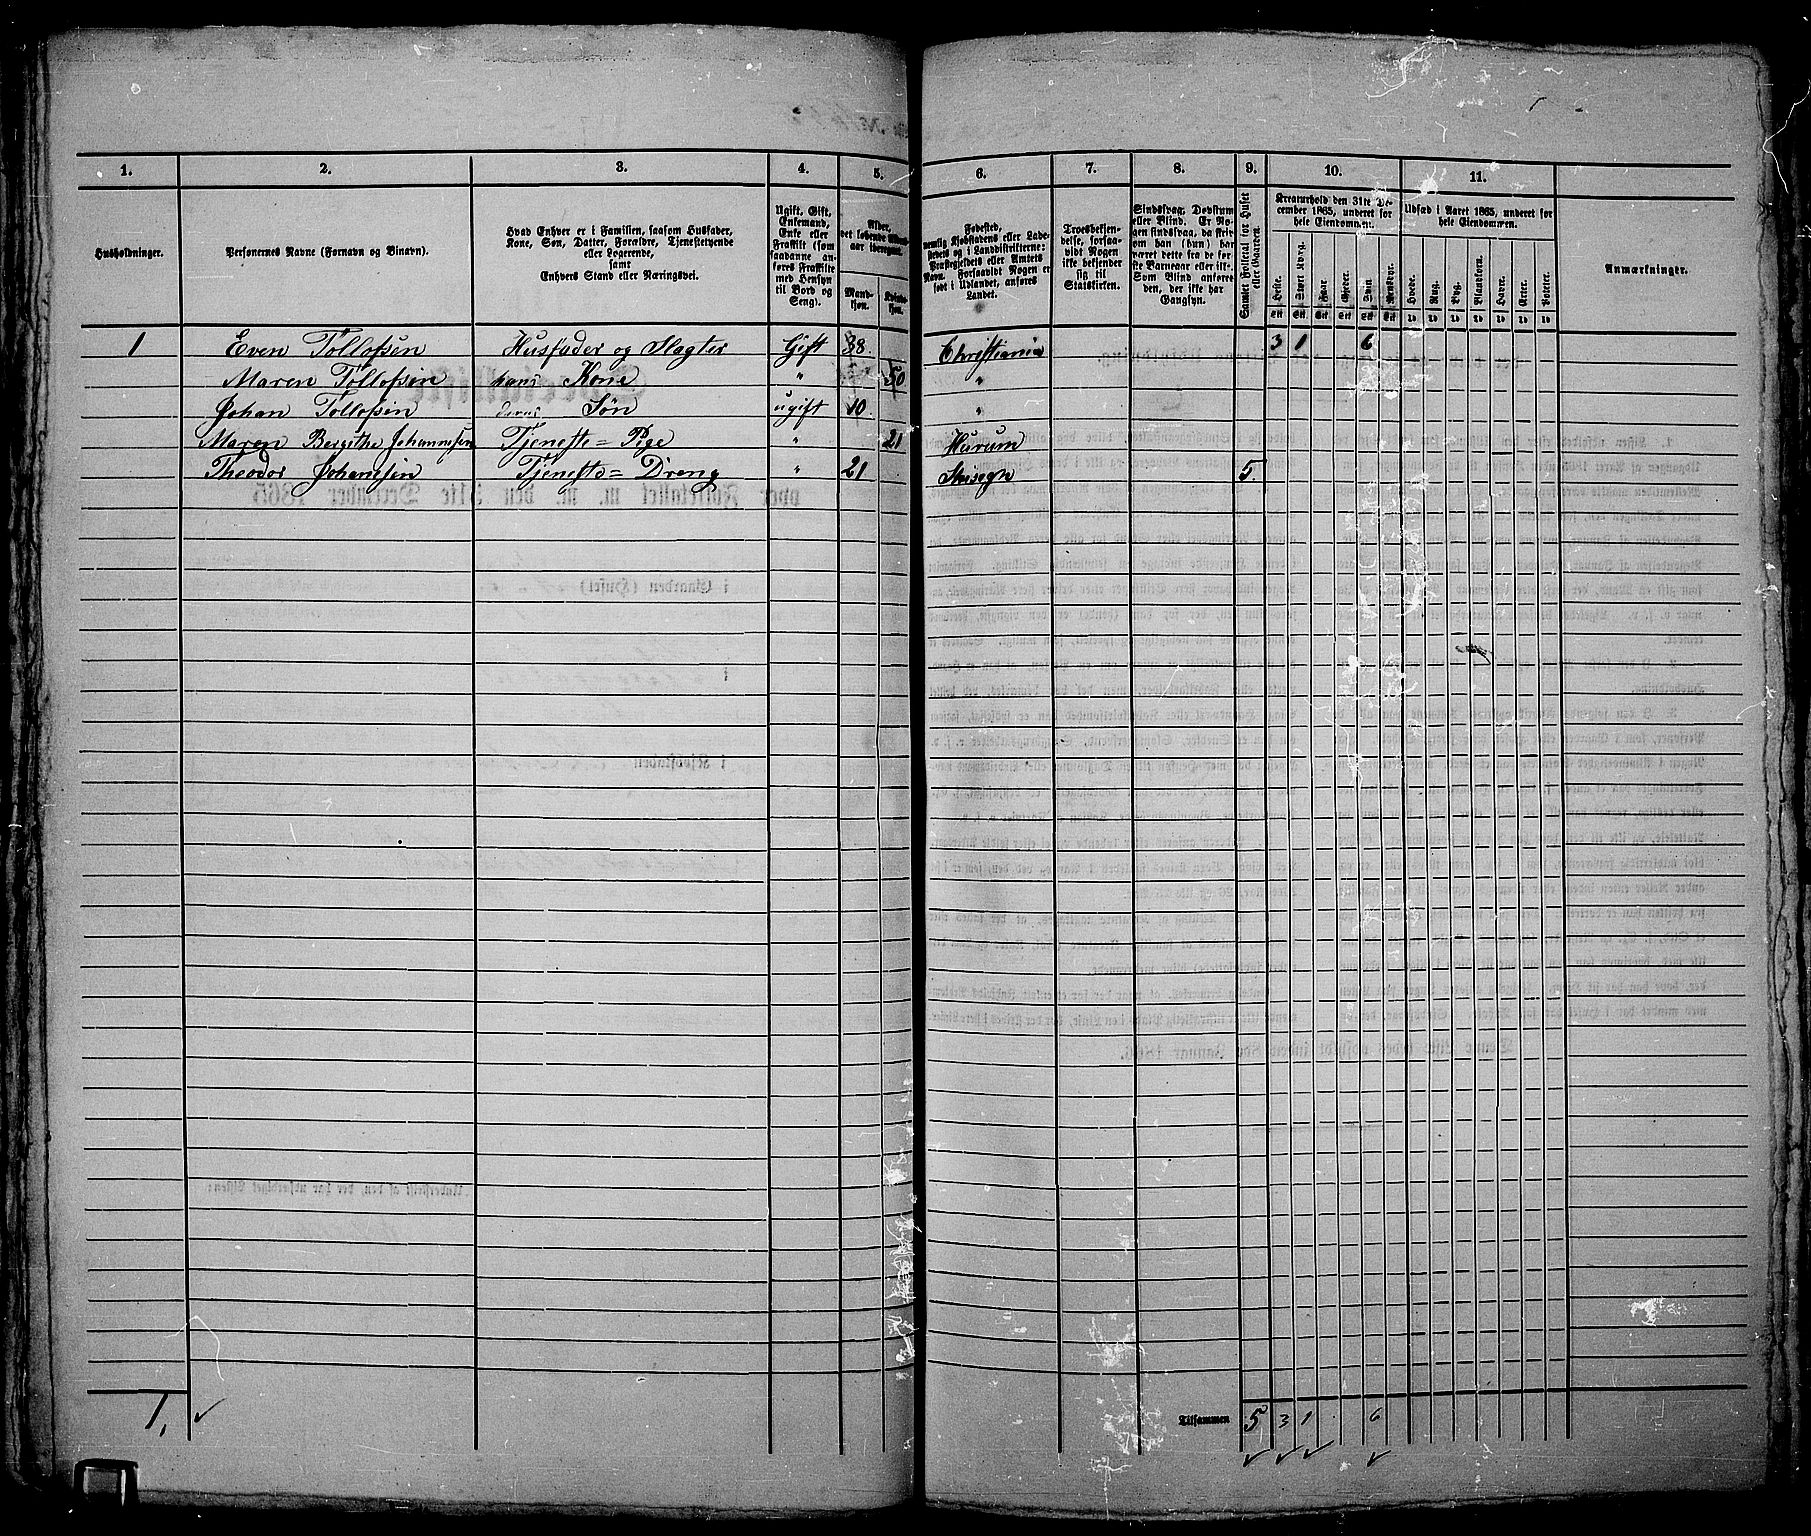 1. 2. 3. 4. 5. 6. 7. 8. 9. 10. 11.
Husholdninger.
Personernes Navne (Fornavn og Binavn).
Hvad Enhver er i Familien, saasom Husfader,
Kone, Søn, Datter, Forældre, Tjenestetyende
eller Logerende,
samt
Enhvers Stand eller Næringsvei.
Ugift, Gift,
Enkemand,
Enke eller
Fraskilt (som
saadanne an-
føres Fraskilte
med Hensyn
til Bord og
Seng).
Alder,
det løbende
aar iberegnet.
Mand-
kjøn.
Kvind-
kjøn.
Fødested,
nemlig Kjøbstadens eller Lade-
stedets og i Landdistrikterne:
Præstegjeldets eller Amtets
Navn. Forsaavidt Nogen er
født i Udlandet, anføres
Landet.
Troesbekjen-
delse, forsaa-
vidt Nogen
ikke bekjender
sig til
Statskirken.
Sindssvag, Døvstum
eller Blind. Er No-
gen sindssvag, da skriv
om han (hun) har
været dette fra de før-
ste Barneaar eller ikke.
Som Blind anføres
den, der ikke har
Gangsyn.
Samlet Folketal for Huset
eller Gaarden.
Kreaturhold den 31te De-
cember 1865, underet for
hele Eiendommen.
Heste.
Stort Kvæg.
Faar.
Gjeder.
Svin.
Rensdyr.
Udsæd i Aaret 1865, underet for
hele Eiendommen.
Hvede.
Rug.
Byg.
Blandkorn.
Havre.
Erter.
Poteter.
Anmærkninger.
1 Even Tollofsen Husfader og Slagter Gift 38. Christiania 3 1 6
Maren Tollofsen hans Kone " 50 "
Johan Tollofsen deres Søn ugift 10. "
Maren Bergithe Johannesen Tjeneste=Pige " 21 Hurum
Theodor Johansen Tjeneste=Dreng " 21 5.
1,
Tilsammen 5 3 1 . 6